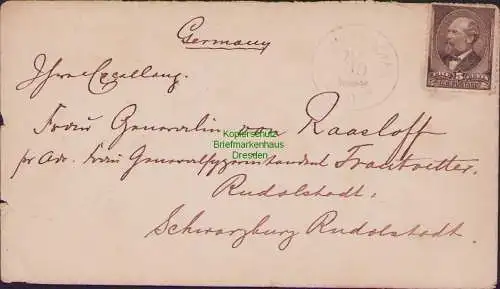 Germany
Ihre Excellenz.
Frau Generalin von Raasloff
pr Adr. Frau Generalsuperintendent Trautvetter.
Rudolstadt.
Schwarzburg Rudolstadt.
Kopierschutz
Briefmarkenhaus
Dresden
5